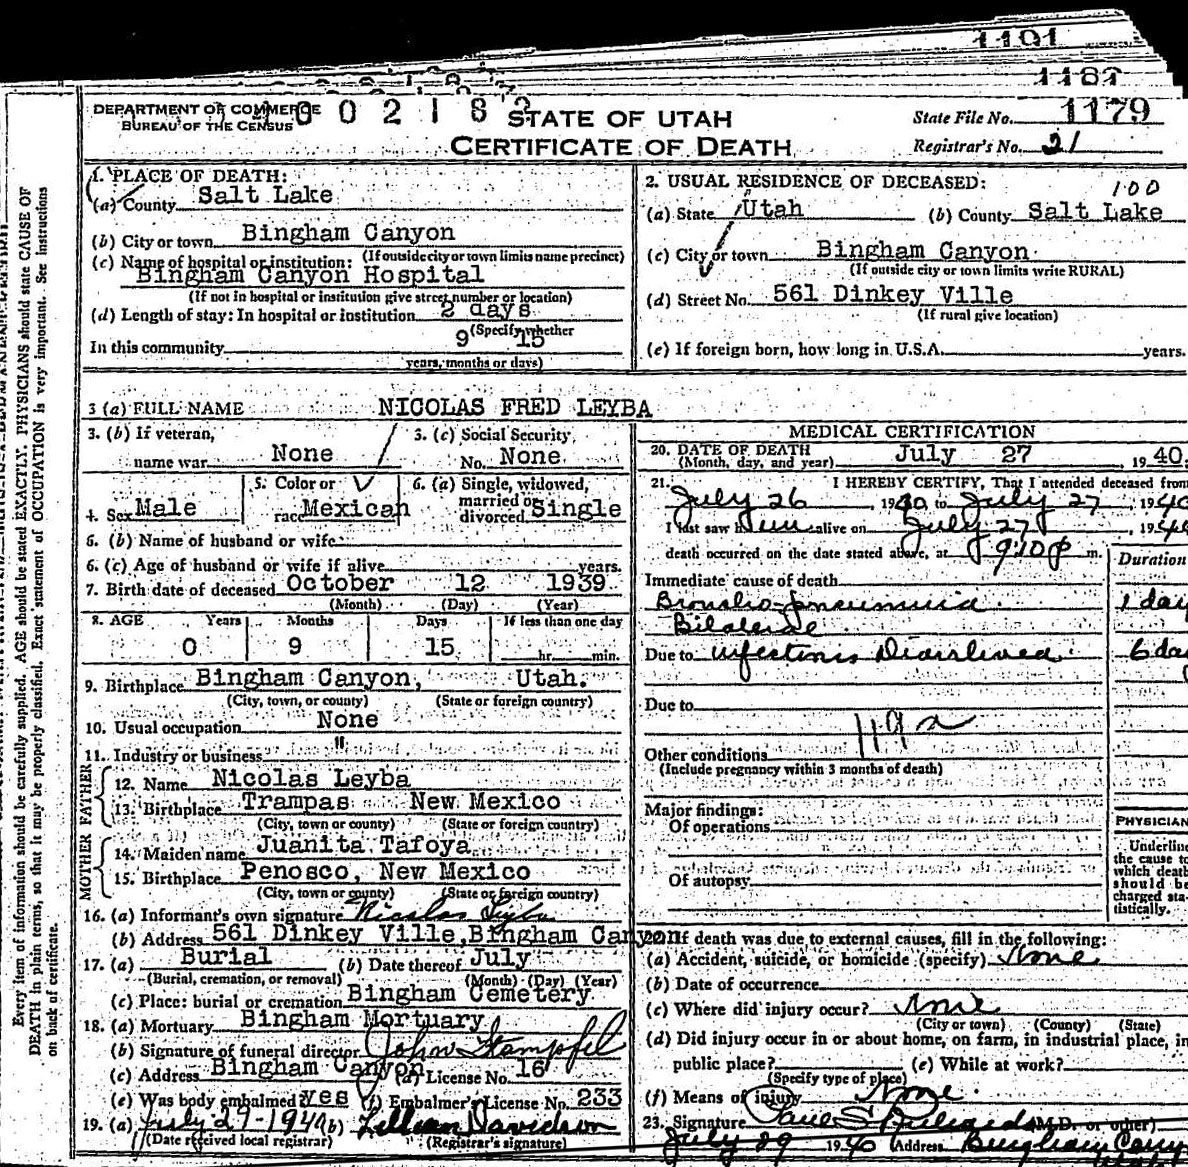 1191
1187
DEPARTMENT OF COMMERCE
BUREAU OF THE CENSUS
STATE OF UTAH
CERTIFICATE OF DEATH
State File No. 1179
Registrar's No. 21
1. PLACE OF DEATH:
(a) County Salt Lake
(b) City or town Bingham Canyon
(If outside city or town limits name precinct)
(c) Name of hospital or institution:
Bingham Canyon Hospital
(If not in hospital or institution give street number or location)
(d) Length of stay: In hospital or institution 2 days
(Specify whether
In this community 9 15
years, months or days)
2. USUAL RESIDENCE OF DECEASED:
100
(a) State Utah (b) County Salt Lake
(c) City or town Bingham Canyon
(If outside city or town limits write RURAL)
(d) Street No. 561 Dinkey Ville
(If rural give location)
(e) If foreign born, how long in U.S.A. years.
3 (a) FULL NAME NICOLAS FRED LEYBA
3. (b) If veteran, name war None
3. (c) Social Security No. None
4. Sex Male
5. Color or race Mexican
6. (a) Single, widowed, married or divorced Single
6. (b) Name of husband or wife
6. (c) Age of husband or wife if alive years.
7. Birth date of deceased October 12 1939
(Month) (Day) (Year)
8. AGE Years Months Days If less than one day
0 9 15 hr. min.
9. Birthplace Bingham Canyon, Utah.
(City, town, or county) (State or foreign country)
10. Usual occupation None
11. Industry or business "
FATHER
12. Name Nicolas Leyba
13. Birthplace Trampas New Mexico
(City, town or county) (State or foreign country)
MOTHER
14. Maiden name Juanita Tafoya
15. Birthplace Penosco, New Mexico
(City, town or county) (State or foreign country)
16. (a) Informant's own signature Nicolas Leyba
(b) Address 561 Dinkey Ville, Bingham Canyon
17. (a) Burial (b) Date thereof July
(Burial, cremation, or removal) (Month) (Day) (Year)
(c) Place: burial or cremation Bingham Cemetery
18. (a) Mortuary Bingham Mortuary
(b) Signature of funeral director John Stampfel
(c) Address Bingham Canyon (d) License No. 16
(e) Was body embalmed yes (f) Embalmer's License No. 233
19. (a) July 29-1940 (b) Lillian Davidson
(Date received local registrar) (Registrar's signature)
MEDICAL CERTIFICATION
20. DATE OF DEATH
(Month, day, and year) July 27, 1940.
21. I HEREBY CERTIFY, That I attended deceased from
July 26 1940 to July 27, 1940
I last saw him alive on July 27, 1940
death occurred on the date stated above, at 9:10 p m.
Duration
Immediate cause of death
Broncho-pneumonia 1 day
Bilateral
Due to 6 day
Due to
119a
Other conditions
(Include pregnancy within 3 months of death)
Major findings:
Of operations
Of autopsy
PHYSICIAN
Underline
the cause to
which death
should be
charged sta-
tistically.
22. If death was due to external causes, fill in the following:
(a) Accident, suicide, or homicide (specify) None
(b) Date of occurrence
(c) Where did injury occur? None
(City or town) (County) (State)
(d) Did injury occur in or about home, on farm, in industrial place, in
public place? (e) While at work?
(Specify type of place)
(f) Means of injury None.
23. Signature Paul S. (M.D. or other)
July 29 1940 Address Bingham Cany
Every item of information should be carefully supplied. AGE should be stated EXACTLY. PHYSICIANS should state CAUSE OF
DEATH in plain terms, so that it may be properly classified. Exact statement of OCCUPATION is very important. See instructions
on back of certificate.